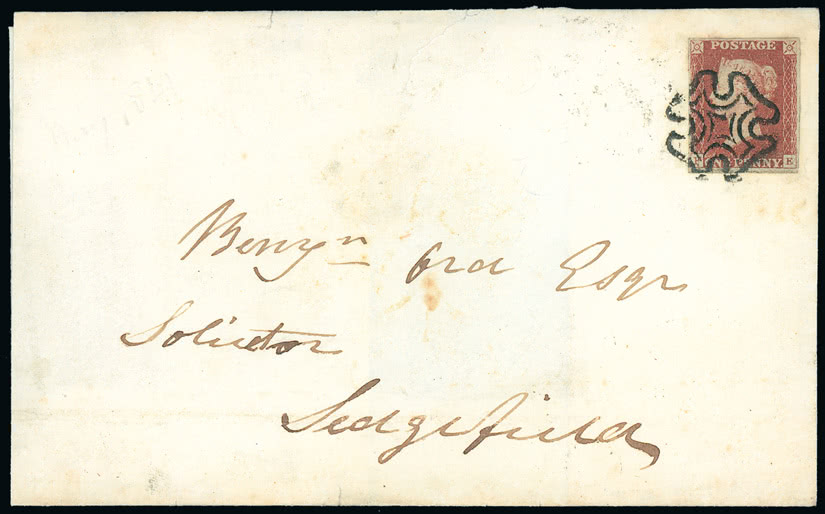 POSTAGE
ONE PENNY
E
Benjn Ord Esqr
Solicitor
Sedgefield